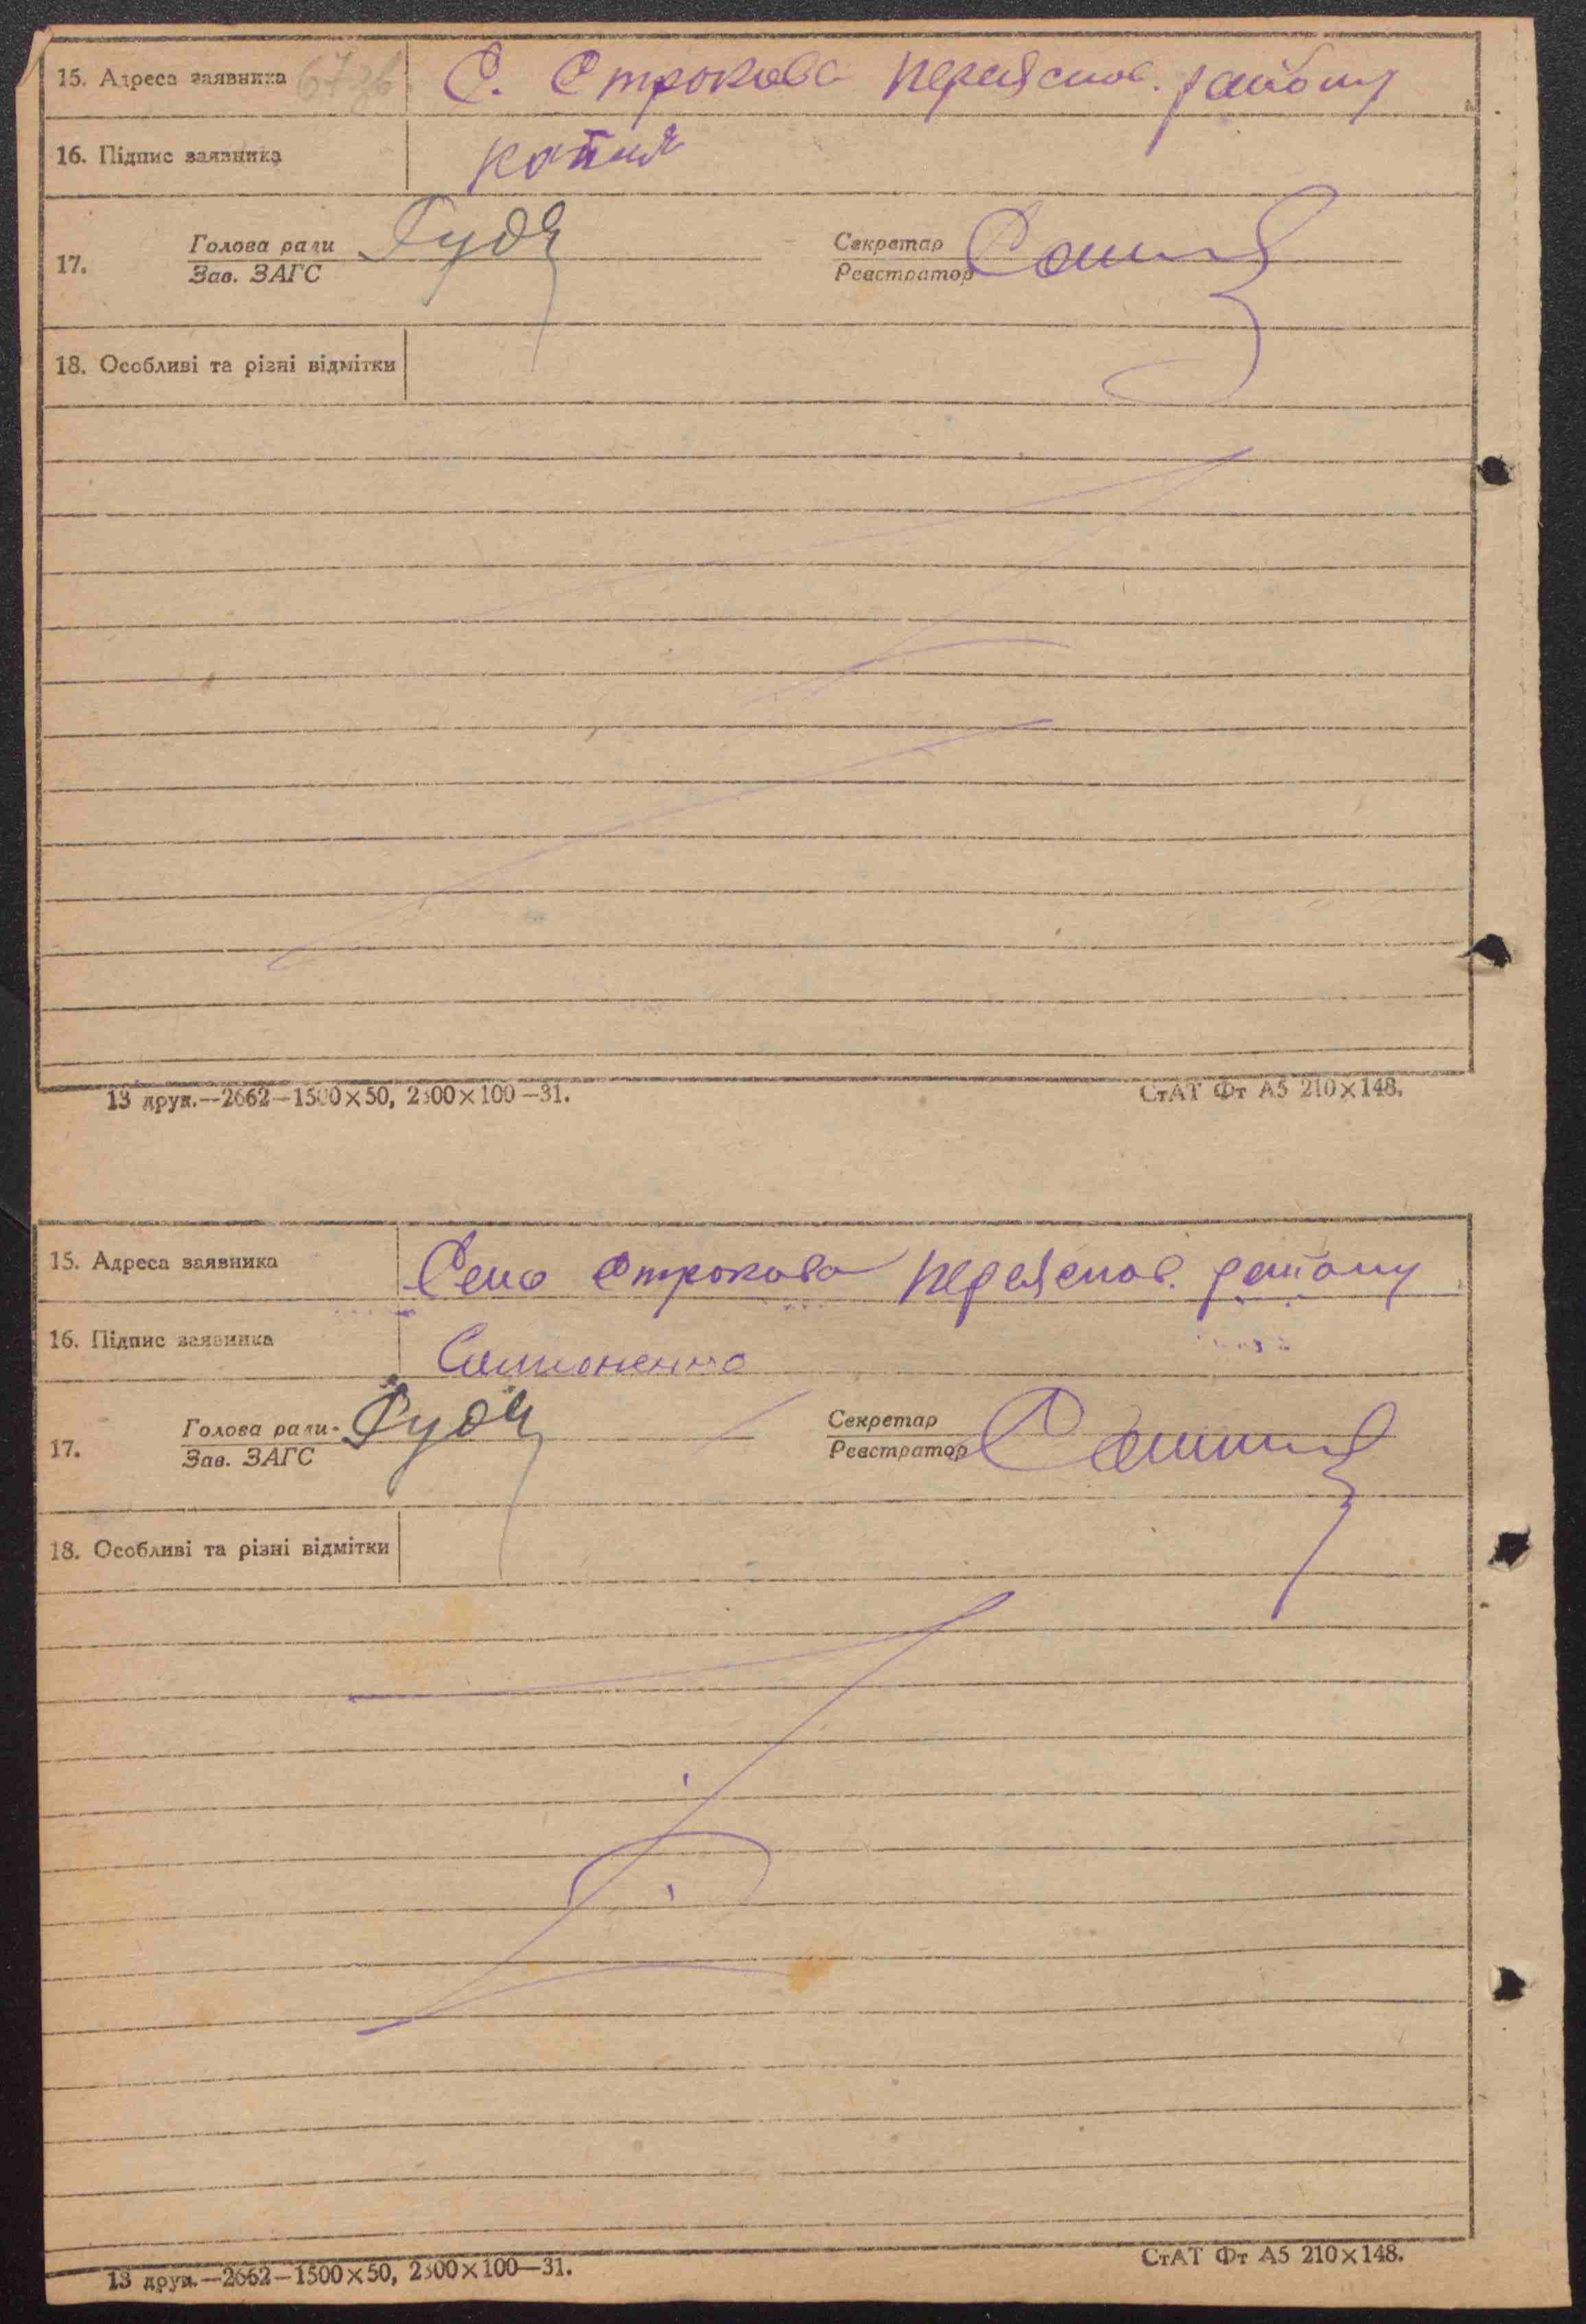 15. Адреса заявника С. Строкова Переяслов. району
16. Підпис заявника копия
Голова ради Гудз Секретар
17.
Зав. ЗАГС Реєстратор
18. Особливі та різні відмітки
13 друк.—2662—1500×50, 2300×100—31. СтАТ Фт А5 210×148.
15. Адреса заявника Село Строкова Переяслов. району
16. Підпис заявника Симоненко
Голова ради Гудз Секретар
17.
Зав. ЗАГС Реєстратор
18. Особливі та різні відмітки
13 друк.—2662—1500×50, 2300×100—31. СтАТ Фт А5 210×148.